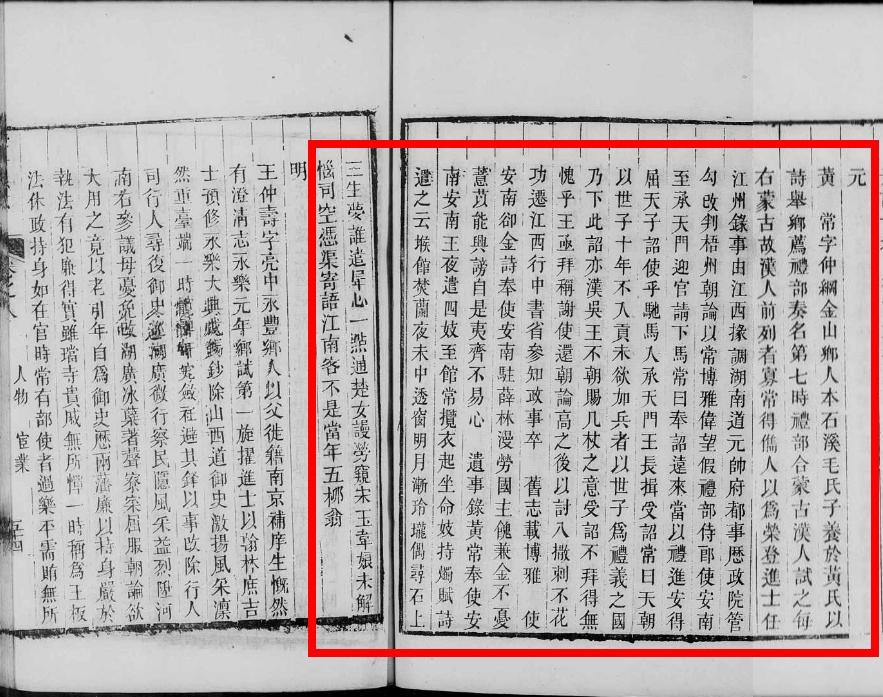 元
黃　常字仲綱金山鄉人本石溪毛氏子養於黃氏以
詩舉鄉薦禮部奏名第七時禮部合蒙古漢人試之每
右蒙古故漢人前列者寡常得儁人以爲榮登進士任
江州錄事由江西掾調湖南道元帥府都事歷政院管
勾改判梧州朝論以常博雅偉望假禮部侍郎使安南
至承天門迎官請下馬常曰奉詔遠來當以禮進安得
屈天子詔使乎馳馬入承天門王長揖受詔常曰天朝
以世子十年不入貢未欲加兵者以世子爲禮義之國
乃下此詔亦漢吳王不朝賜几杖之意受詔不拜得無
愧乎王亟拜稱謝使還朝論高之後以討入撒剌不花
功遷江西行中書省參知政事卒　舊志載博雅　使
安南卻金詩奉使安南駐薛林漫勞國主餽兼金不憂
薏苡能興謗自是夷齊不易心　遺事錄黃常奉使安
南安南王夜遣四妓至館常攬衣起坐命妓持燭賦詩
遣之云堠館焚蘭夜未中透窗明月漸玲瓏偶尋石上
三生夢誰遣犀心一㸃通楚女謾勞窺宋玉韋娘未解
惱司空憑渠寄語江南客不是當年五柳翁
明
王仲壽字亮中永豐鄉人以父徙籍南京補庠生慨然
有澄清志永樂元年鄉試第一旋擢進士以翰林庶吉
士預修永樂大典成錫鈔除山西道御史激揚風采凜
然重臺端一時
司行人尋復御史廵湖廣微行察民隱風采益烈陞河
南右參議母憂免改湖廣冰蘗著聲寮寀屈服朝論欲
大用之竟以老引年自爲御史歷兩藩廉以持身嚴於
執法有犯廉得實雖璫寺貴戚無所憚一時稱爲王板
法休政持身如在官時常有部使者過樂不需賄無所
人物　宦業
五十四